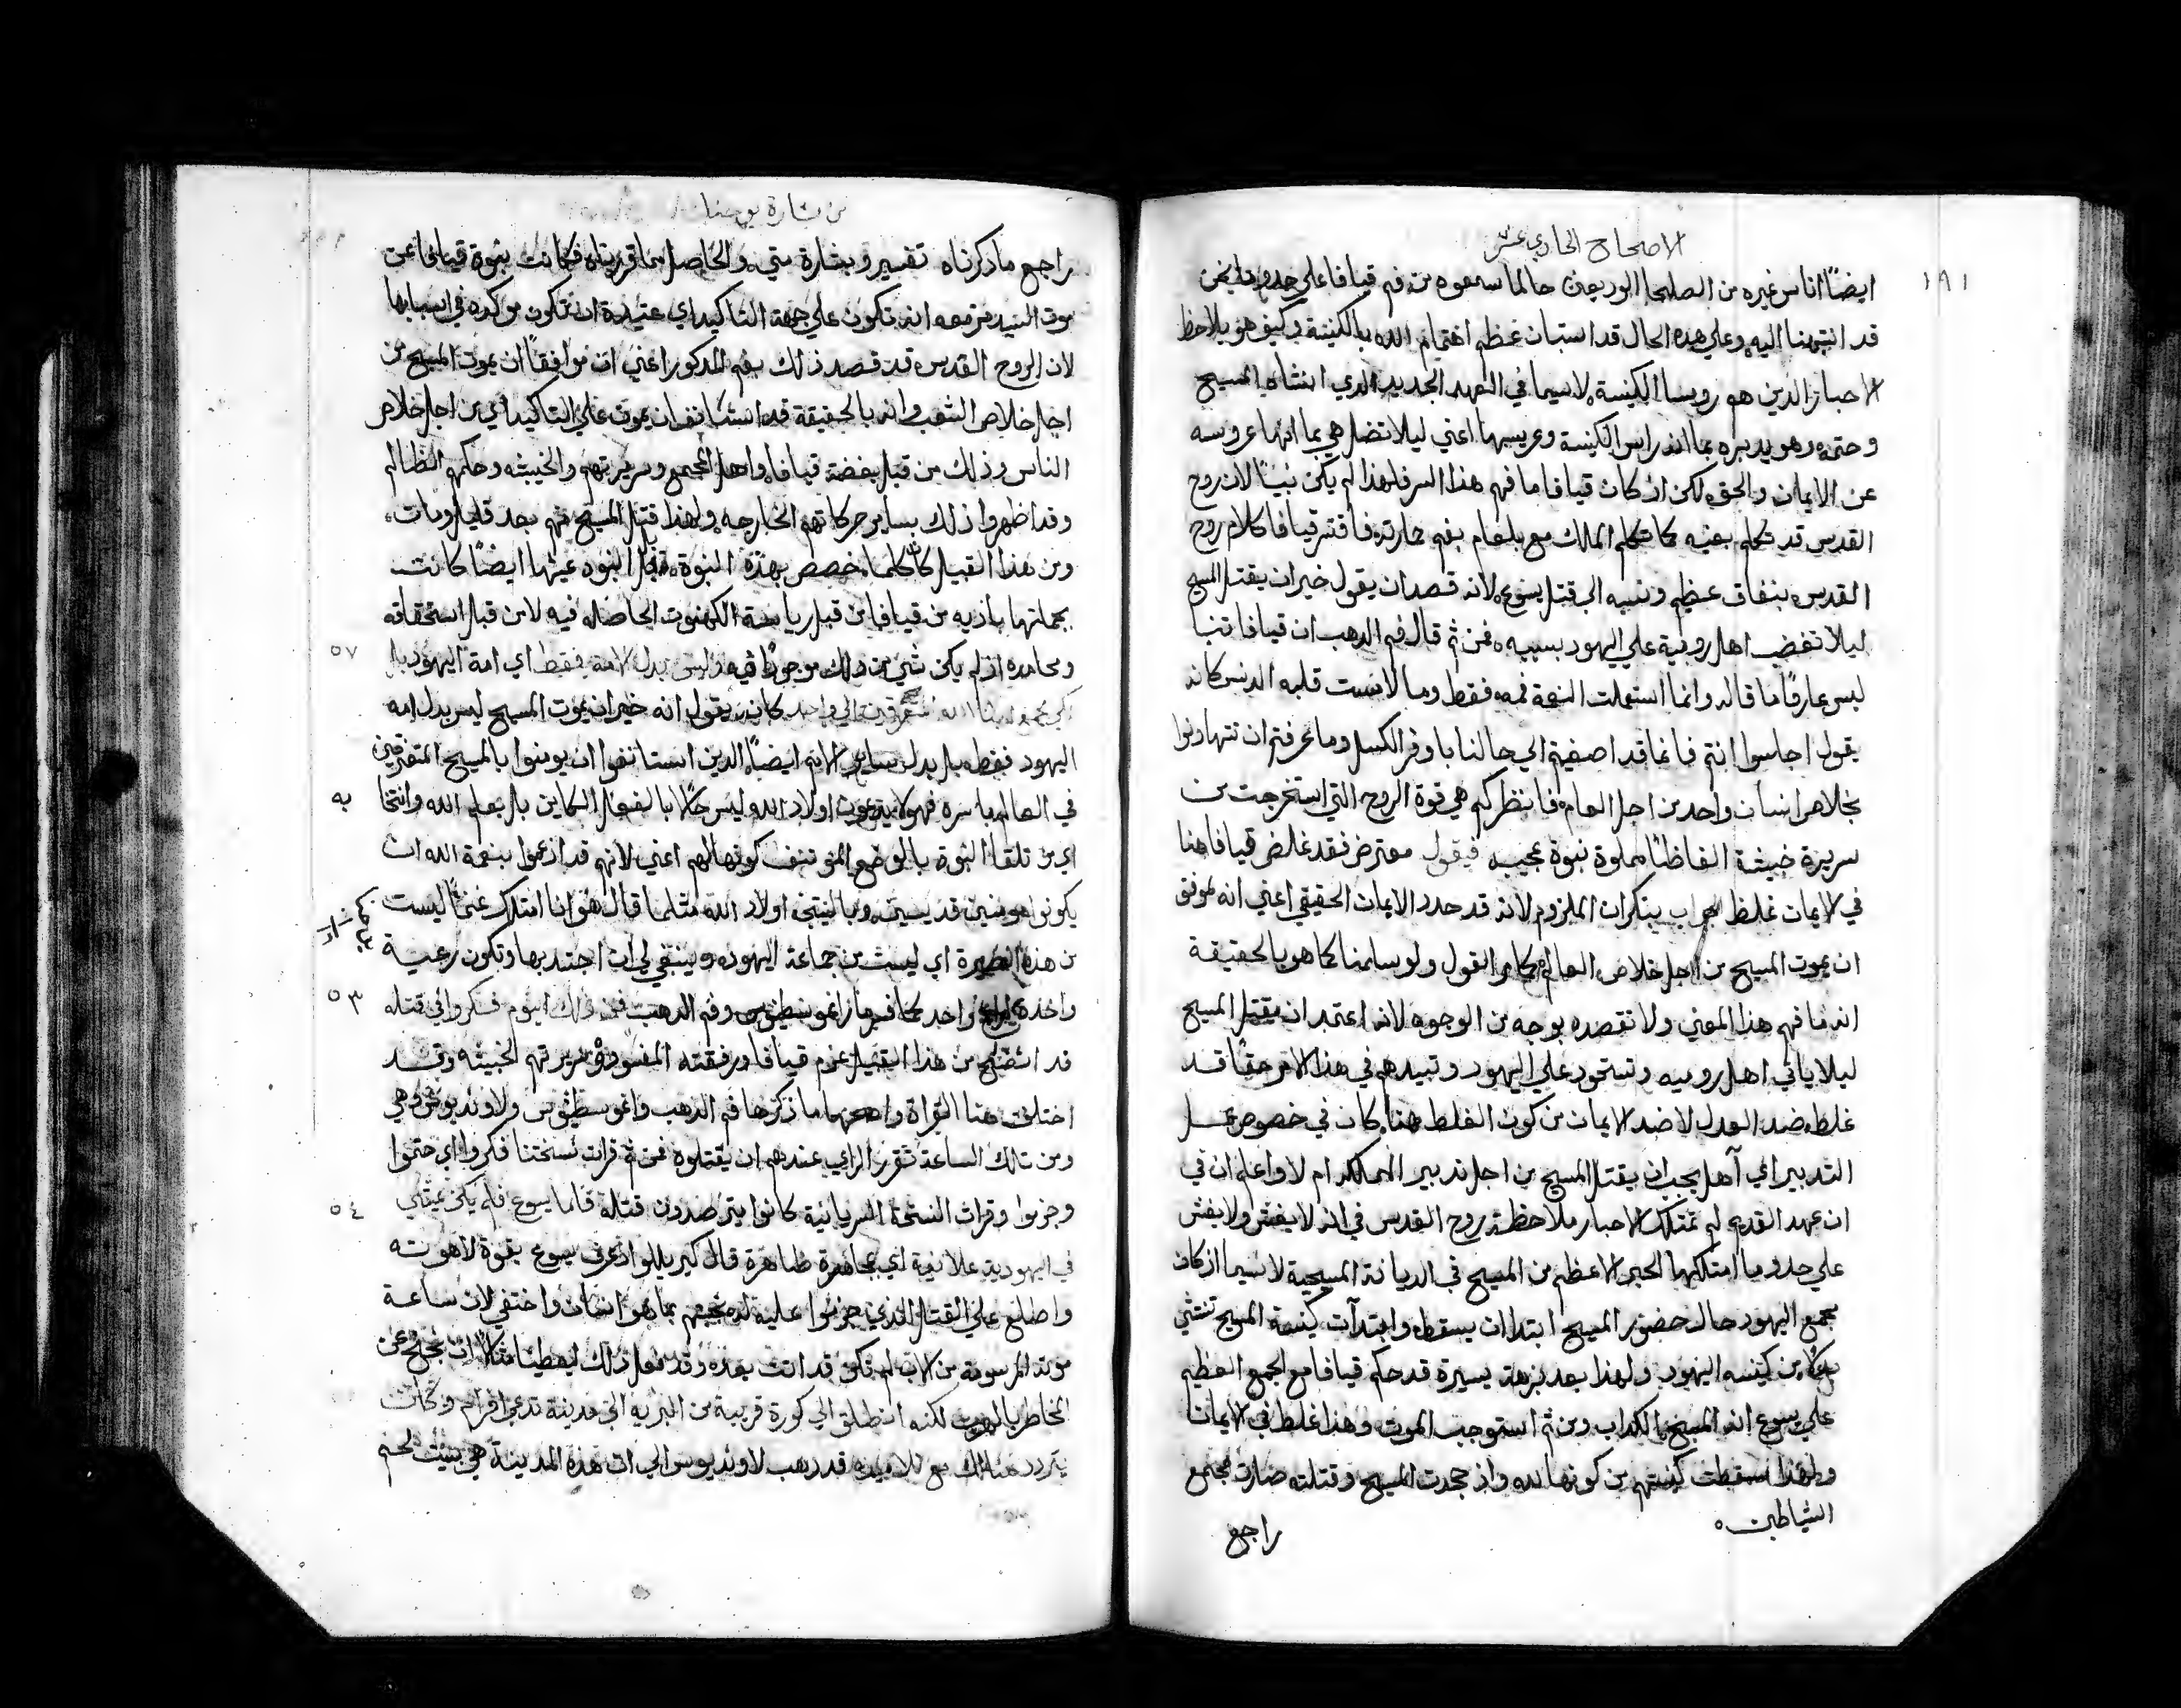 الاصحاح الحادي عشر
١٩١
ايضًا اناس غيره من الصلحا الوديعين حالما سمعوه من فم قيافا على حدو ما نحن
قد انتبهنا اليه وعلي هذه الحال قد استبان عظم اهتمام الله بالكنيسة وكيف هو يلاحظ
الاحبار الذين هم روسا الكنيسة لاسيما في العهد الجديد الذي انشاه المسيح
وختمه وهو يدبره بما انه راس الكنيسة وعريسها اعني ليلا تضل هي بما انها عروسه
عن الايمان والحق لكن ان كان قيافا ما فهم هذا السر فلهذا لم يكن نبيًا لان روح
القدس قد تكلم بفيه كما تكلم الملاك مع بلعام بفم حمارته فافتسر قيافا كلام روح
القدس بنفاق عظيم ونسبه الي قتل يسوع لانه قصد ان يقول خير ان يقتل المسيح
ليلا تغضب اهل رومية علي اليهود بسببه فمن ثم قال فم الدهب ان قيافا تنبا
ليس عارفًا ما قاله وانما استعملت النعمة فمه فقط وما لامست قلبه الدنس كانه
يقول اجلسوا انتم فانما قد اصغيتم الي حالنا باوفر الكسل وما عرفتم ان تتهاونوا
بخلاص انسان واحد من اجل العام فانظر كم هي قوة الروح التي استخرجت من
سريرة خبيثة الفاظًا مملوة نبوة عجيبه فيقول معترض فقد غلض قيافا هنا
في الايمان غلظ جواب ببنكران الملزوم لانه قد حدد الايمان الحقيقي اعني انه لموفق
ان يموت المسيح من اجل خلاص العالم القول ولو سلمنا كما هو بالحقيقة
انه ما فهم هذا المعني ولا نقصده بوجه من الوجوه لانه اعتمد ان يقتل المسيح
ليلا ياتي اهل روميه وتستحود علي اليهود وتبيدهم في هذا الامر حقًا قد
غلط ضد العدل لا ضد الايمان من كون الغلط هنا كان في خصوص عمل
التدبير اي آهل يجب ان يقتل المسيح من اجل تدبير الممالك ام لا واعلم ان في
ان عهد القديم لم تمتلك الاحبار ملاحظة روح القدس في انه لا يغش ولا يغش
علي حدو ما امتلكها الحبر الاعظم من المسيح في الديانة المسيحية لاسيما اذ كان
مجمع اليهود حال حضور المسيح ابتدا ان يسقط وابتدآت كنيسة المسيح تنتشي
بدلًا من كنيسه اليهود ولهذا بعد نزهة يسيرة قد حكم قيافا مع المجمع العظيم
علي يسوع انه المسيح الكداب ومن ثم استوجب الموت وهذا غلط في الايمان
ولهذا سقطت كنيستهم من كونها لله واذ جحدت المسيح وقتلته صارت مجمع
الشياطين
راجع
من بشارة يوحنا
راجع ما ذكرناه تفسير وبشارة متي والحاصل مما قررناه فكانت نبوة قيافا عن
موت السيد مزمعه انه تكون علي جهة التاكيد اي عتيدة ان تكون موكده في اسبابها
لان الروح القدس قد قصد ذلك بفم المدكور اعني ان موافقًا ان يموت المسيح من
اجل خلاص الشعب وانه بالحقيقة قد استانف ان يموت علي التاكيد اي من اجل خلاص
الناس وذلك من قبل بغضة قيافا واهل المجمع وسريرتهم والخبيثه وحكمهم الظالم
وقد اظهروا ذلك بساير حركاتهم الخارجه ولهذا قتل المسيح منهم بعد قليل ومات
ومن هذا القبيل كان خصص بهذه النبوة النبوه عينها ايضًا كانت
بجملتها باديه من قيافا من قبل رياسة الكهنوت الحاصله فيه لا من قبل استحقاقه
٥٢
ومحامده اذ لم يكن شي من ذلك موجودًا فيه وليس بدل الامة فقط اي امة اليهود بل
كي يجمع المتفرقين الي واحد كانه يقول انه خير ان يموت المسيح ليس بدل امه
اليهود فقط بل بدل ساير الامم ايضًا الذين استانفوا ان يومنوا بالمسيح المتفرقين
في العالم باسره فهولا يدعون اولاد الله ليس حالًا بالفعل الكاين بل بعلم الله وانتخا
به
اي من تلقا النبوة بالوضع المونف كونهالهم اعني لانهم قد ازمعوا بنعمة الله ان
يكونوا مومنين قديسين وبالنتيجه اولاد الله مثلما قال هو انا امتلك غنمًا ليست
من هذه الحظيرة اي ليست من جماعة اليهود وينبغي لي ان اجتدبها وتكون رعية
واحده لراع واحد كما فسر ماراغوسطينوس وفم الدهب فمن ذلك اليوم فكروا في قتله
٥٣
قد اتضح من هذا القبيل عزم قيافا ورفقته المفسود وسريرتهم الخبيثه وقد
اختلفت هنا القراة واصحها ما ذكرها فم الدهب واغوسطينوس ولاونديوس وهي
ومن تلك الساعة تقرر الراي عندهم ان يقتلوه فمن ثم قرات نسختنا فكروا اي حتموا
وجزموا وقرات النسخة السريانية كانوا يترصدون قتله فاما يسوع فلم يكن يمشي
٥٤
في اليهودية علانية اي مجاهرة ظاهرة قال كيرللوا اذ عرف يسوع بقوة لاهوته
واطلع علي القتل الذي جزموا عليه له بما هو انسان واختفي لان ساعة
موته المرسومة من الاب لم تكن قد اتت بعده وقد فعل ذلك ليعطينا مثالًا ان نجنح عن
المخاطر بالهرب لكنه انطلق الي كورة قريبة من البريه الي مدينة تدعي افرام وكان
يتردد هنالك مع تلاميده قد ذهب لاونديوس الي ان هذه المدينة هي بيت لحم